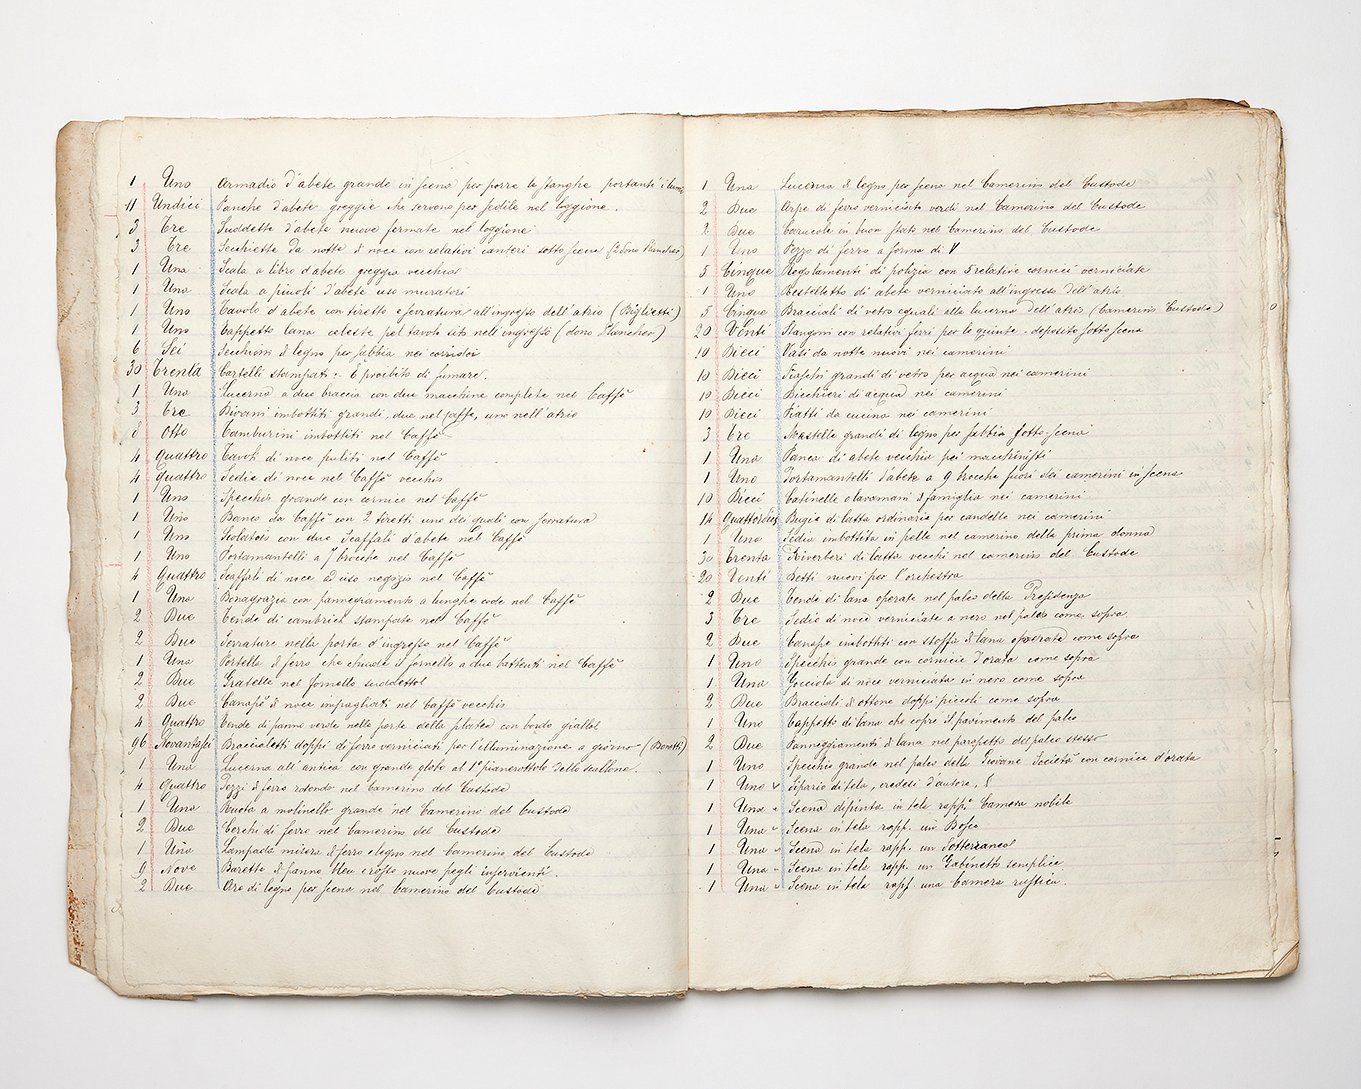 1 Uno Armadio d'abete grande in scena per porre le stanghe portanti i lumi
11 Undici Panche d'abete greggie che servono per sedile nel loggione.
3 Tre Suddette d'abete nuove fermate nel loggione
3 Tre Secchiette da notte di noce con relativi canteri sotto scena (2 dono Plancher)
1 Una Scala a libro d'abete greggia vecchia
1 Una Scala a piuoli d'abete uso muratori
1 Uno Tavolo d'abete con tiretto e serratura all'ingresso dell'atrio (Biglietti)
1 Uno Tappetto lana celeste pel tavolo sito nell'ingresso (dono Plancher)
6 Sei Secchioni di legno per sabbia nei corridoi
30 Trenta Cartelli stampati :- È proibito di fumare.
1 Una Lucerna a due braccia con due macchine complete nel Caffè
3 Tre Divani imbottiti grandi, due nel Caffe, uno nell'atrio
8 Otto Tamburini imbottiti nel Caffè
4 Quattro Tavoli di noce puliti nel Caffè
4 Quattro Sedie di noce nel Caffè vecchie
1 Uno Specchio grande con cornice nel Caffè
1 Uno Banco da Caffè con 2 tiretti uno dei quali con serratura
1 Uno Scolatoio con due Scaffali d'abete nel Caffè
1 Uno Portamantelli a 7 brocche nel Caffè
4 Quattro Scaffali di noce ad uso negozio nel Caffè
1 Una Bonagrazia con panneggiamento a lunghe code nel Caffè
2 Due Tende di cambrich stampate nel Caffè
2 Due Serrature nella porta d'ingresso nel Caffè
1 Una Portella di ferro che chiude il fornello a due battenti nel Caffè
2 Due Gratelle nel fornello suddetto
2 Due Canapè di noce impagliati nel Caffè vecchi
4 Quattro Tende di panno verde nelle porte della platea con bordo giallo
96 Novantasei Braccialetti doppi di ferro verniciati per l'illuminazione a giorno (Bonotti)
1 Una Lucerna all'antica con grande globo al 1° pianerottolo dello scalone.
4 Quattro Pezzi di ferro rotondo nel Camerino del Custode
1 Una Ruota a molinello grande nel Camerino del Custode
2 Due Cerchi di ferro nel Camerino del Custode
1 Una Lampada misera di ferro e legno nel Camerino del Custode
9 Nove Barette di panno bleu e rosso nuove pegli inservienti.
2 Due Are di legno per scena nel Camerino del Custode
1 Una Lucerna di legno per scena nel Camerino del Custode
2 Due Arpe di ferro verniciate verdi nel Camerino del Custode
2 Due Carucole in buon stato nel Camerino del Custode
1 Uno Pezzo di ferro a forma di V
5 Cinque Regolamenti di polizia con 5 relative cornici verniciate
1 Uno Restelletto di abete verniciato all'ingresso dell'atrio
5 Cinque Bracciali di vetro eguali alla lucerna dell'atrio (Camerino Custode)
20 Venti Stangoni con relativi ferri per le quinte - deposito sotto scena
10 Dieci Vasi da notte nuovi nei camerini
10 Dieci Fiaschi grandi di vetro per acqua nei camerini
10 Dieci Bicchieri di acqua nei camerini
10 Dieci Piatti da cucina nei camerini
3 Tre Mastelle grandi di legno per sabbia sotto-scena
1 Una Panca di abete vecchia pei macchinisti
1 Uno Portamantelli d'abete a 9 brocche fuori dei camerini in scena
10 Dieci Catinelle o lavamani di famiglia nei camerini
14 Quattordici Bugie di latta ordinarie per candelle nei camerini
1 Una Sedia imbottita in pelle nel camerino della prima donna
30 Trenta Riverberi di latta vecchi nel camerino del Custode
20 Venti Letti nuovi per l'orchestra
2 Due Tende di lana operate nel palco della Presidenza
3 Tre Sedie di noce verniciate a nero nel palco come sopra
2 Due Canapè imbottiti con stoffa di lana operata come sopra
1 Uno Specchio grande con cornicie d'orata come sopra
1 Una Cocciola di noce verniciata in nero come sopra
2 Due Braccioli di ottone doppi piccoli come sopra
1 Uno Tappetto di lana che copre il pavimento del palco
2 Due Panneggiamenti di lana nel parapetto del palco stesso
1 Uno Specchio grande nel palco della Giovane Società con cornice d'orata
1 Uno Sipario di tela, credesi d'autore,
1 Una Scena dipinta in tela rapp. Camera nobile
1 Una Scena in tela rapp. un Bosco
1 Una Scena in tela rapp. un Sotterraneo
1 Una Scena in tela rapp. un Gabinetto semplice
1 Una Scena in tela rapp. una Camera rustica.